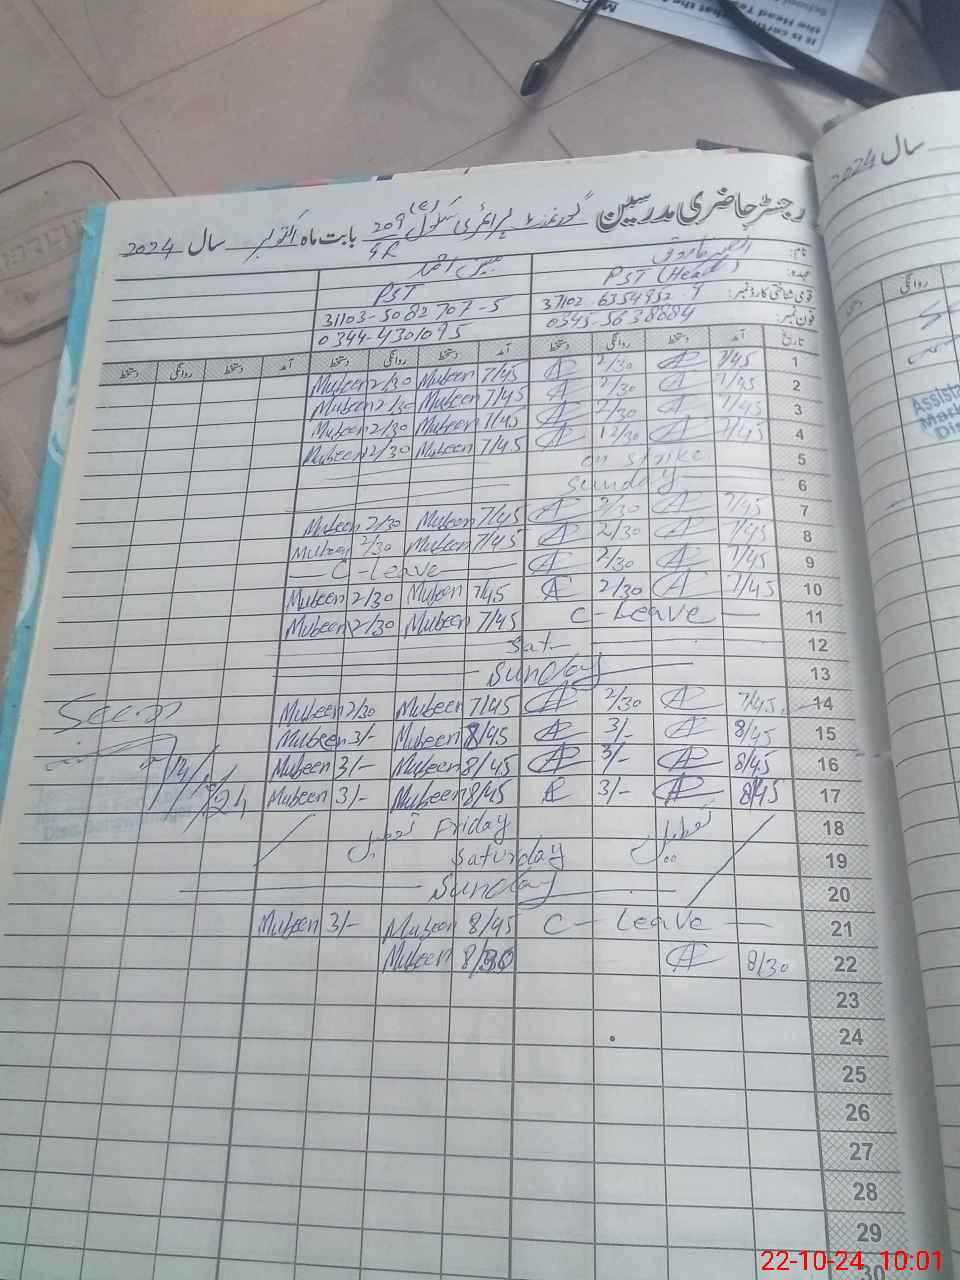 رجسٹر حاضری مدرسین گورنمنٹ پرائمری سکول 209 بابت ماہ اکتوبر سال 2024
نام:
عہدہ: PST (Head) PST
قومی شناختی کارڈ نمبر: 37102-6354952-9 31103-5082707-5
فون نمبر: 0345-5638884 0344-4301095
تاریخ آمد دستخط روانگی دستخط آمد دستخط روانگی دستخط آمد دستخط روانگی دستخط
1 7/45 2/30 7/45 Mubeen 2/30 Mubeen
2 7/45 2/30 7/45 Mubeen 2/30 Mubeen
3 7/45 2/30 7/45 Mubeen 2/30 Mubeen
4 7/45 12/30 7/45 Mubeen 12/30 Mubeen
5 on strike
6 Sunday
7 7/45 2/30 7/45 Mubeen 2/30 Mubeen
8 7/45 2/30 7/45 Mubeen 2/30 Mubeen
9 7/45 2/30 C-Leave
10 7/45 2/30 7/45 Mubeen 2/30 Mubeen
11 C-Leave 7/45 Mubeen 2/30 Mubeen
12 Sat
13 Sunday
14 7/45 2/30 7/45 Mubeen 2/30 Mubeen
15 8/45 3/- 8/45 Mubeen 3/- Mubeen
16 8/45 3/- 8/45 Mubeen 3/- Mubeen
17 8/45 3/- 8/45 Mubeen 3/- Mubeen
18 تعطیل Friday تعطیل
19 Saturday
20 Sunday
21 C-Leave 8/45 Mubeen 3/- Mubeen
22 8/30 8/30 Mubeen
23
24
25
26
27
28
29
30
Seen
سال 2024
روانگی
Assista
Mark
Dis
22-10-24 10:01